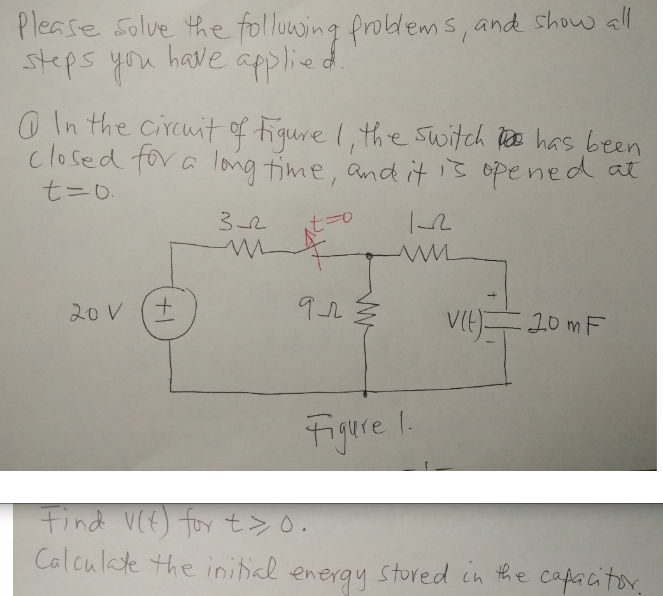 Please solve the following problems, and show all
steps you have applied.
① In the circuit of Figure 1, the switch has been
closed for a long time, and it is opened at
t=0.
3Ω t=0 1Ω
20 V + - 9Ω V(t) + - 20 mF
Figure 1.
Find V(t) for t ≥ 0.
Calculate the initial energy stored in the capacitor.